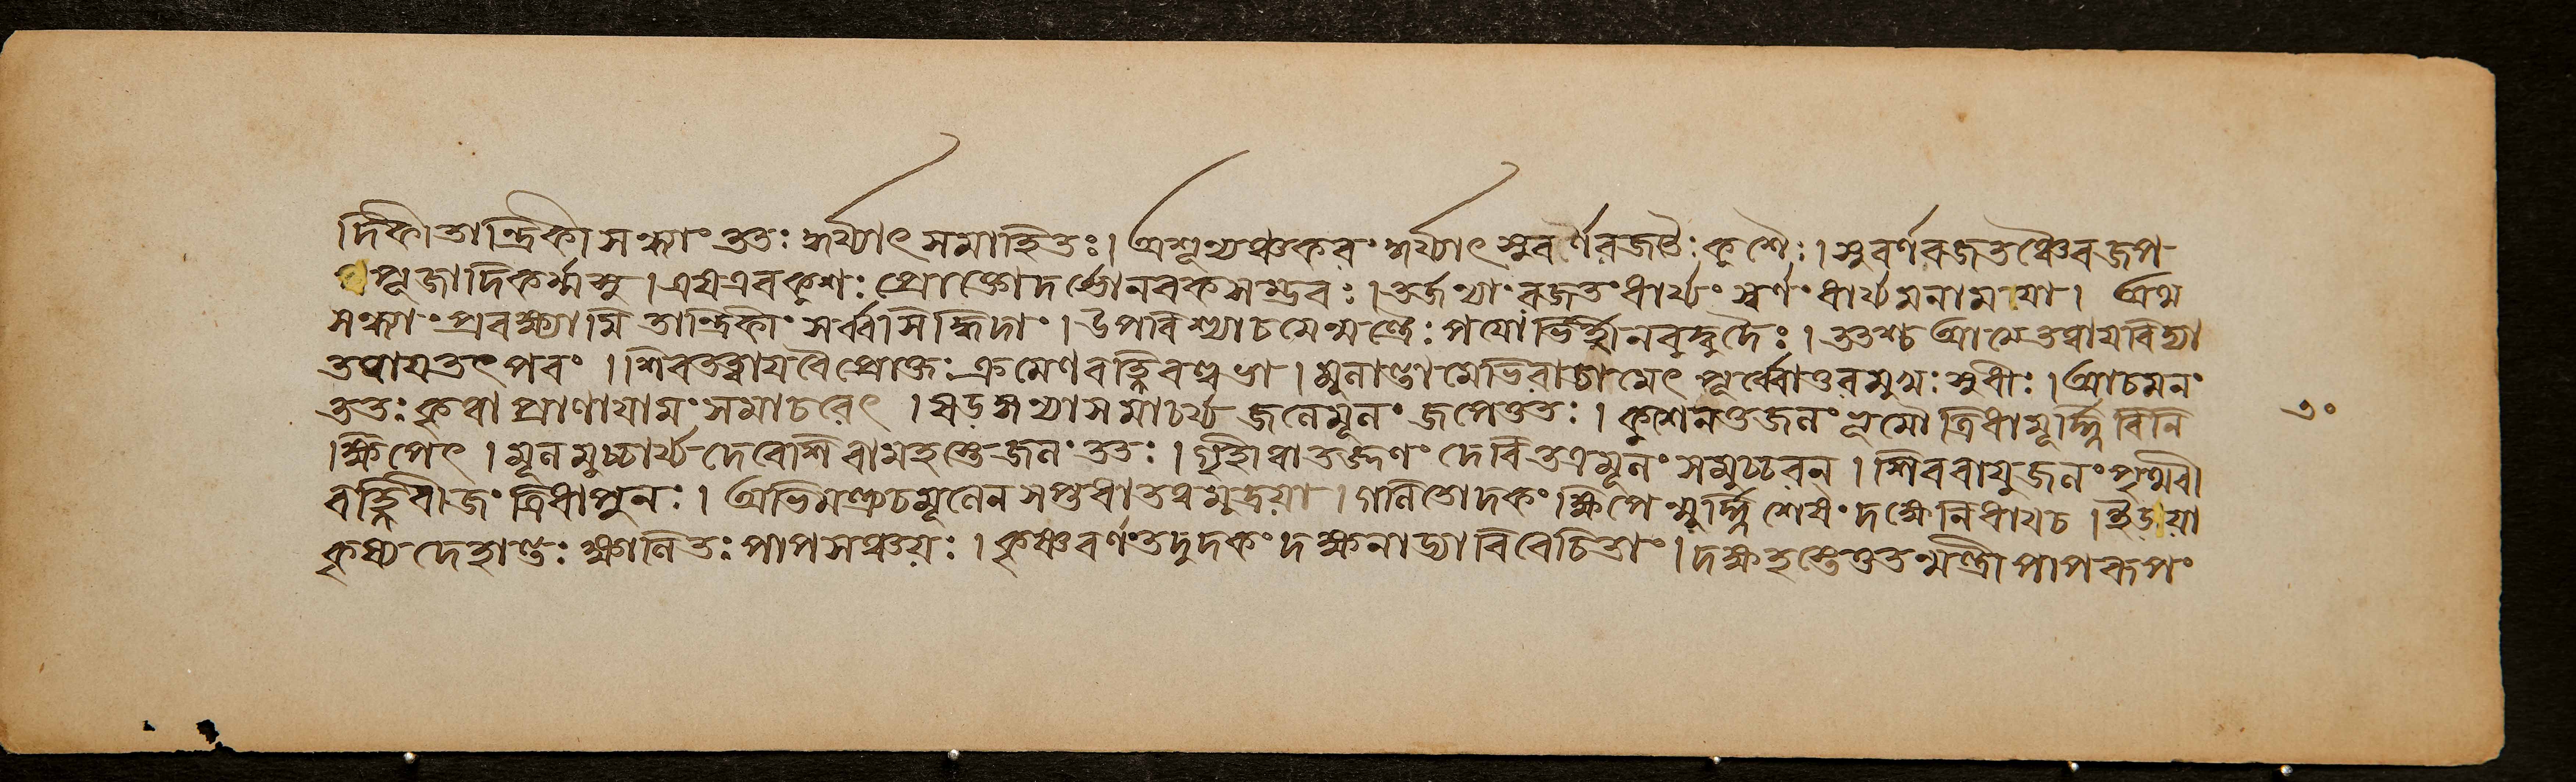 দিকীতান্ত্রিকীসন্ধ্যাং ততঃ কুর্য্যাৎ সমাহিতঃ। অশূন্যঞ্চকরং কুর্য্যাৎ সুবর্ণরজতৈঃ কুশৈঃ। সুবর্ণরজতঞ্চৈবজপ
পূজাদিকর্ম্মসু। এষএবকুশঃ প্রোক্তোদর্ভোনবকসম্ভবঃ। তর্জন্যাং রজতং ধার্য্যং স্বর্ণং ধার্য্যমনাময়া। অথ
সন্ধ্যাং প্রবক্ষ্যামি তান্ত্রিকীং সর্ব্বসিদ্ধিদাং। উপবিশ্যাচমেন্মন্ত্রৈঃ পয়োভির্হীনবুদ্বুদৈঃ। ততশ্চ আত্মতত্বায়বিদ্যা
তত্বায়তৎ পরং। শিবতত্ত্বায়বৈপ্রোক্তঃ ক্রমেণবহ্নিবল্লভা। মূলান্তামেভিরাচামেৎ পূর্ব্বোত্তরমুখঃ সুধীঃ। আচমনং
ততঃ কৃত্বা প্রাণায়ামং সমাচরেৎ। ষড়ঙ্গন্যাসমাচর্য্য জলেমূলং জপেত্ততঃ। কুশেনতজ্জলং ভূমৌ ত্রিধামূর্দ্ধ্নি বিনি ৩০
ক্ষিপেৎ। মূলমুচ্চার্য্য দেবেশিবামহস্তেজলং ততঃ। গৃহীত্বাতজ্জলং দেবিতত্রমূলং সমুচ্চরন্। শিববায়ুজলং পৃথ্বী
বহ্নিবীজং ত্রিধাপুনঃ। অভিমন্ত্র্যচমূলেন সপ্তধাতত্বমুদ্রয়া। গলিতোদকং ক্ষিপেন্মূর্দ্ধ্নি শেষং দক্ষেনিধায়চ। ইড়য়া
কৃষ্য দেহান্তঃ ক্ষালিতঃ পাপসঞ্চয়ঃ। কৃষ্ণবর্ণং তদুদকং দক্ষনাড্যাবিরেচিতাং। দক্ষহস্তেতুতন্মন্ত্রী পাপরূপং